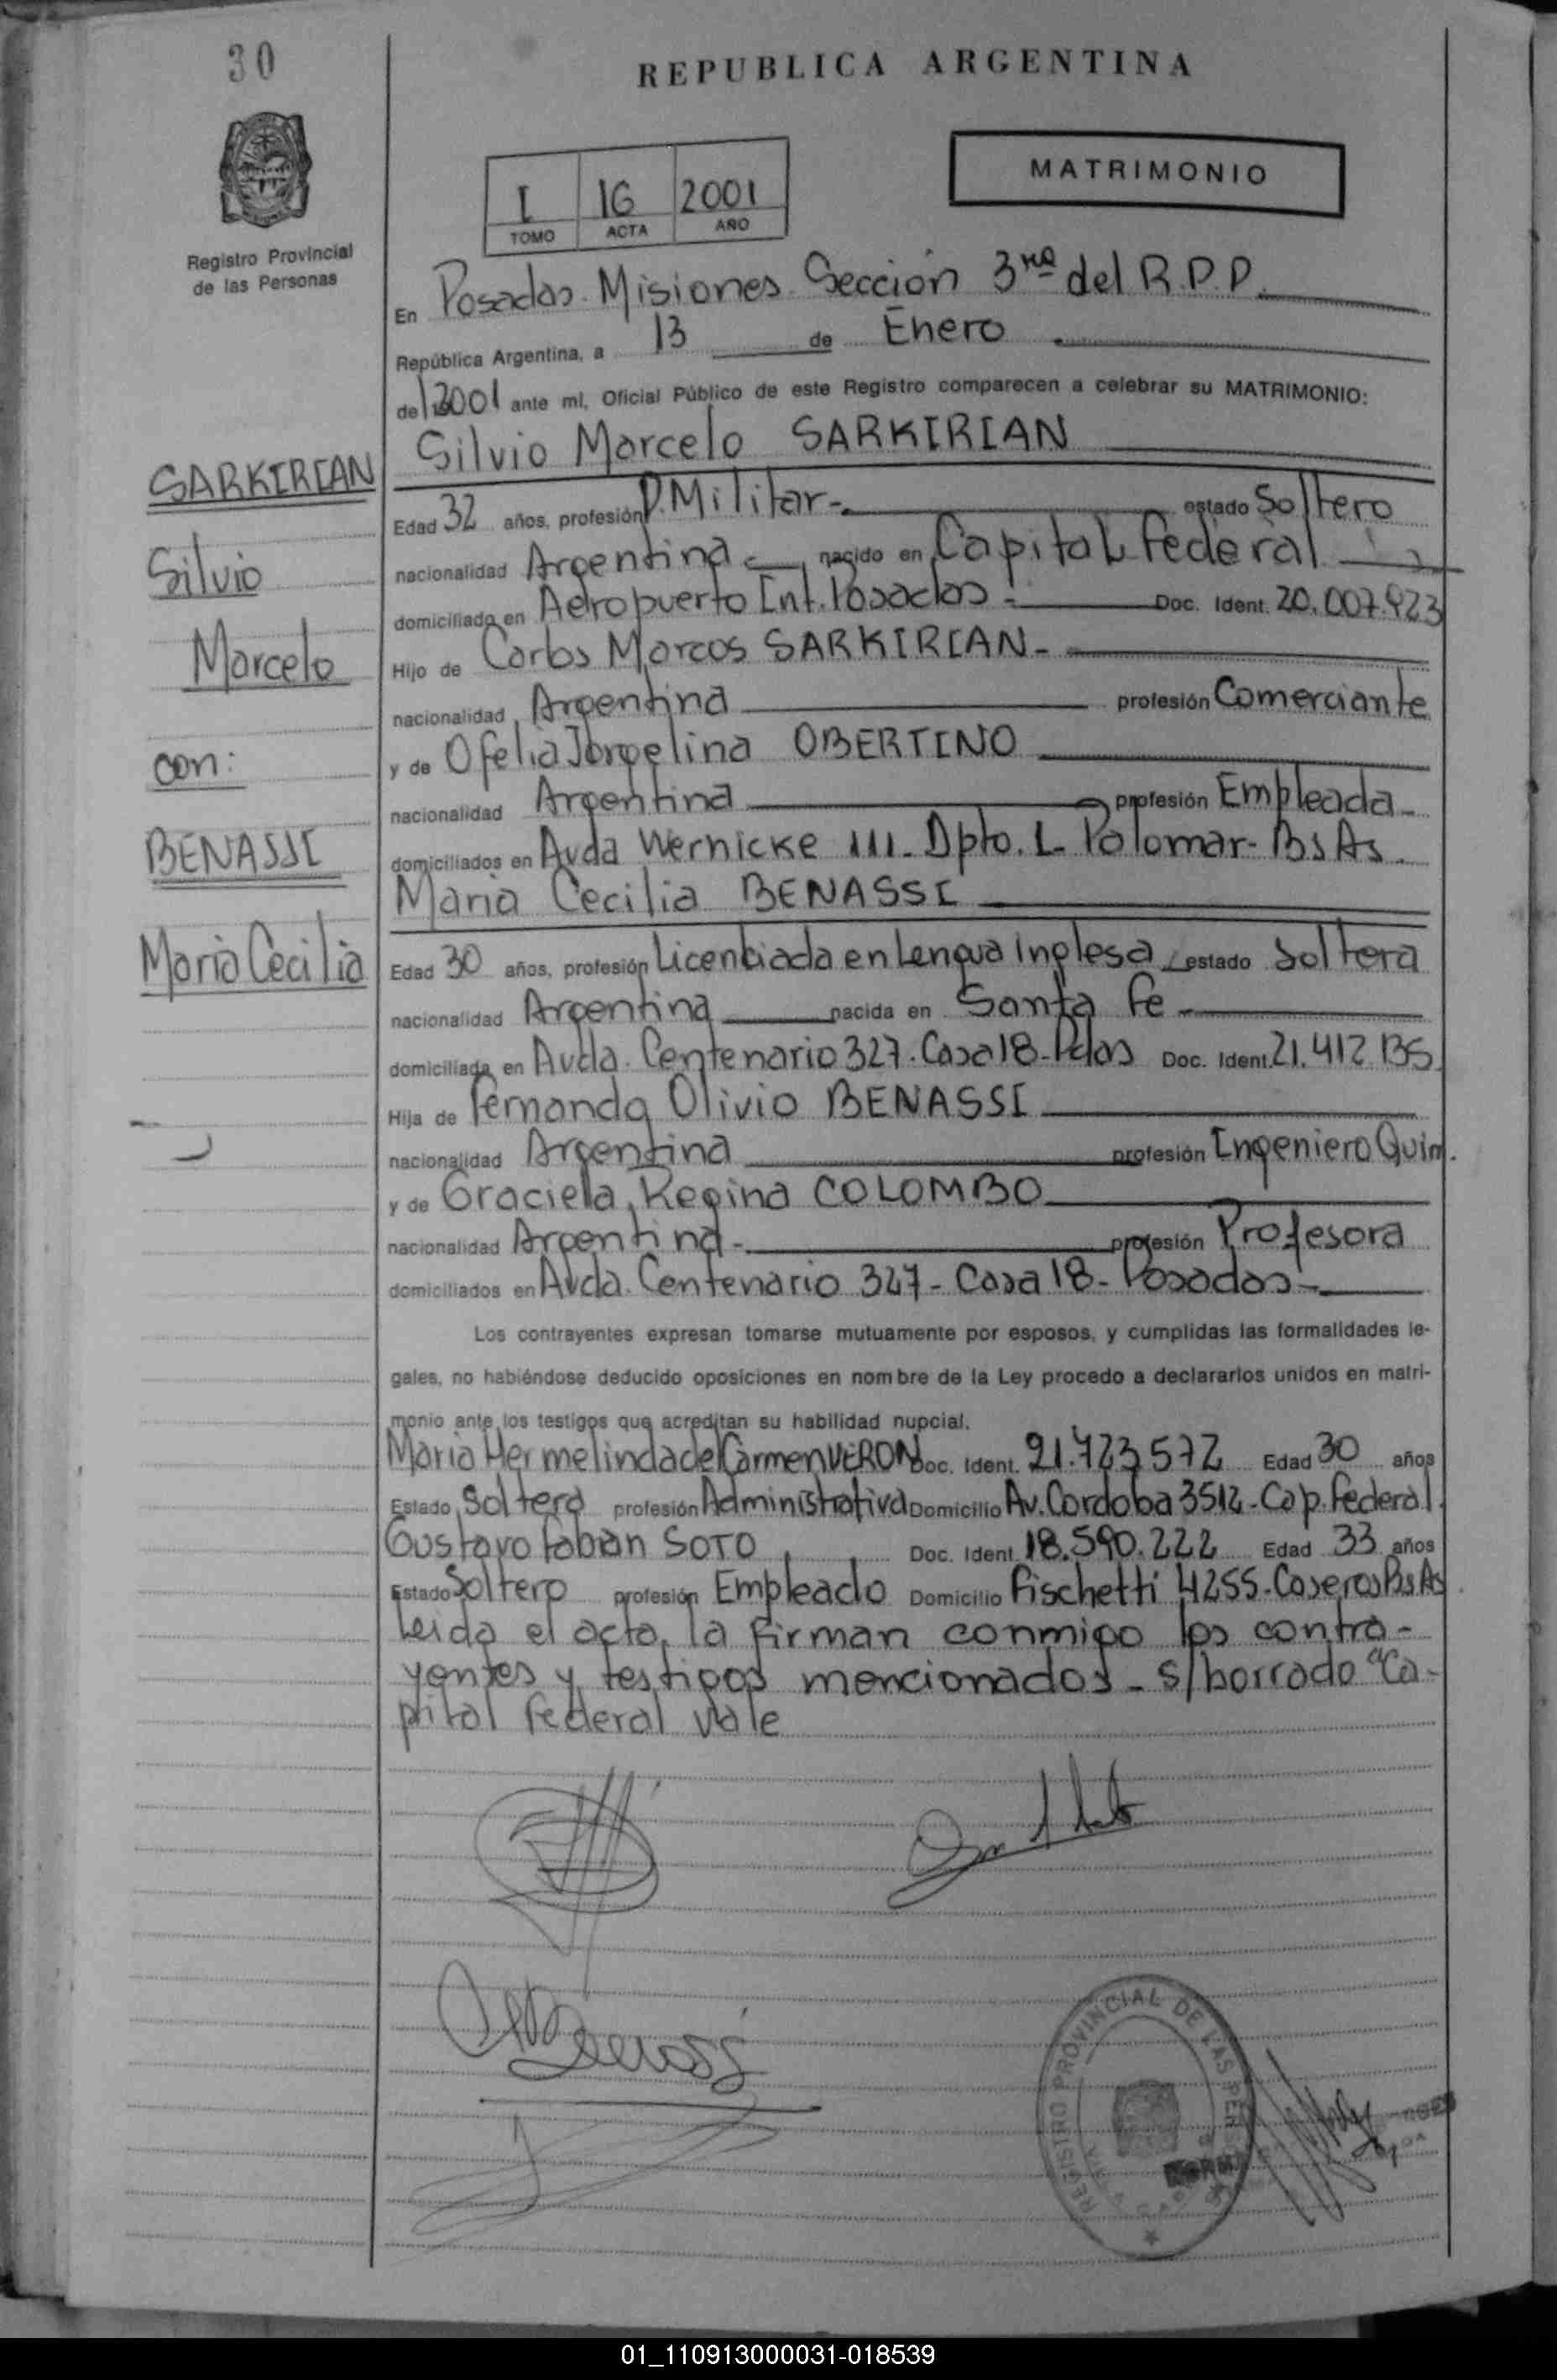 30
REPUBLICA ARGENTINA
MATRIMONIO
I 16 2001
TOMO ACTA AÑO
Registro Provincial
de las Personas
En Posadas. Misiones. Sección 3ra del R.P.P.
República Argentina, a 13 de Enero
de 2001 ante mi, Oficial Público de este Registro comparecen a celebrar su MATRIMONIO:
Silvio Marcelo SARKIRIAN
SARKIRIAN
Silvio
Marcelo
con:
BENASSI
Maria Cecilia
Edad 32 años, profesión P. Militar-. estado Soltero
nacionalidad Argentina - nacido en Capital Federal
domiciliado en Aeropuerto Int. Posadas - Doc. Ident. 20.007.923
Hijo de Carlos Marcos SARKIRIAN-
nacionalidad Argentina profesión Comerciante
y de Ofelia Jorgelina OBERTINO
nacionalidad Argentina profesión Empleada-
domiciliados en Avda Wernicke 111- Dpto. L- Palomar- Bs As.
Maria Cecilia BENASSI
Edad 30 años, profesión Licenciada en Lengua Inglesa estado Soltera
nacionalidad Argentina nacida en Santa Fe -
domiciliada en Avda. Centenario 327. Casa 18- Pdas Doc. Ident. 21.412.135
Hija de Fernando Olivio BENASSI
nacionalidad Argentina profesión Ingeniero Quim.
y de Graciela Regina COLOMBO
nacionalidad Argentina- profesión Profesora
domiciliados en Avda. Centenario 327- Casa 18- Posadas-
Los contrayentes expresan tomarse mutuamente por esposos, y cumplidas las formalidades le-
gales, no habiéndose deducido oposiciones en nombre de la Ley procedo a declararlos unidos en matri-
monio ante los testigos que acreditan su habilidad nupcial.
Maria Hermelinda del Carmen VERON Doc. Ident. 21.723.572 Edad 30 años
Estado Soltera profesión Administrativa Domicilio Av. Cordoba 3512- Cap. Federal.
Gustavo Fabian SOTO Doc. Ident. 18.590.222 Edad 33 años
Estado Soltero profesión Empleado Domicilio Fischetti 4255- Caseros Bs As
Leida el acta, la firman conmigo los contra-
yentes y testigos mencionados - s/borrado "Ca-
pital Federal Vale
REGISTRO PROVINCIAL DE LAS PERSONAS
01_110913000031-018539